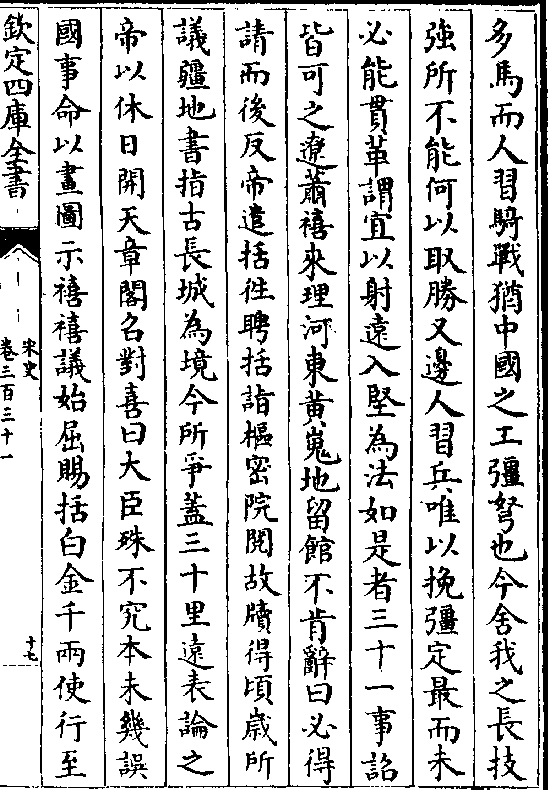 多馬而人習騎戰猶中國之工彊弩也今舍我之長技
強所不能何以取勝又邊人習兵唯以挽彊定最而未
必能貫革謂宜以射遠入堅為法如是者三十一事詔
皆可之遼蕭禧來理河東黃嵬地留館不肯辭曰必得
請而後反帝遣括徃聘括詣樞密院閱故牘得頃歳所
議疆地書指古長城為境今所爭蓋三十里遠表論之
帝以休日開天章閣名對喜曰大臣殊不究本末幾誤
國事命以畫圖示禧禧議始屈賜括白金千兩使行至
欽定四庫全書
宋史
卷三百三十一
十七